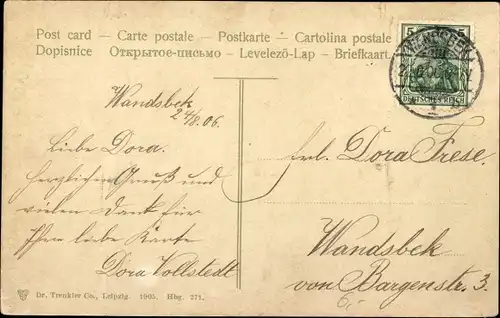 Post card – Carte postale – Postkarte – Cartolina postale
Dopisnice – Открытое-письмо – Levelező-Lap – Briefkaart.
5 5
WANDSBEK
DEUTSCHES REICH
Wandsbek
24/8.06.
Liebe Dora.
Herzlichen Gruß und
vielen Dank für
Ihre liebe Karte
Dora Vollstedt
Frl. Dora Frese.
Wandsbek
von Bargenstr. 3.
Dr. Trenkler Co., Leipzig. 1905. Hbg. 271.